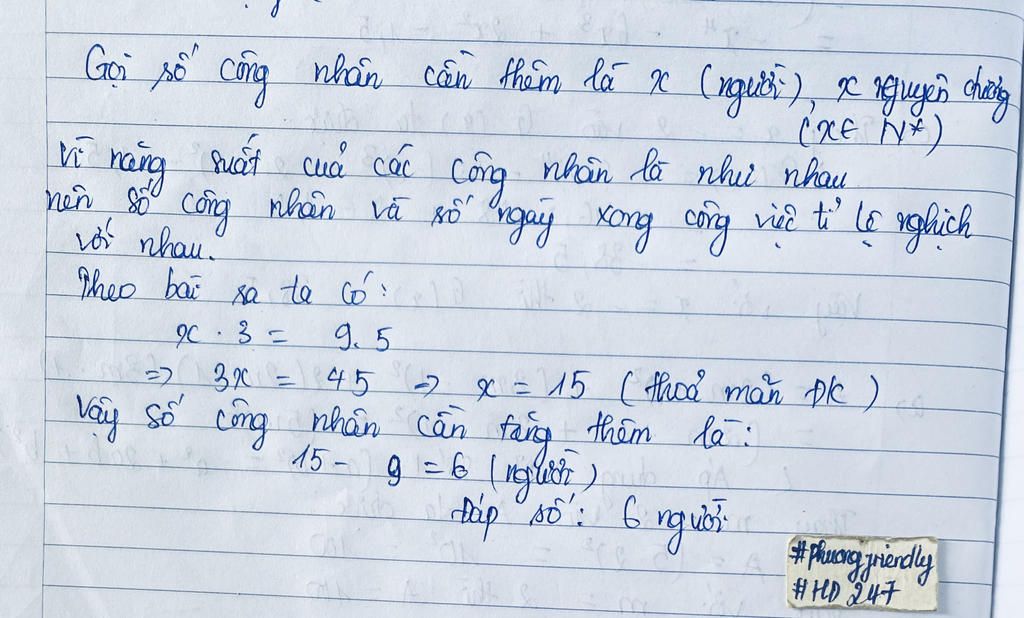 Gọi số công nhân cần thêm là x (người), x nguyên dương
(x ∈ N*)
Vì năng suất của các công nhân là như nhau
nên số công nhân và số ngày xong công việc tỉ lệ nghịch
với nhau.
Theo bài ra ta có:
x . 3 = 9. 5
=> 3x = 45 => x = 15 (thoả mãn ĐK)
Vậy số công nhân cần tăng thêm là:
15 - 9 = 6 (người)
Đáp số: 6 người
#Phuongfriendly
#HD 247